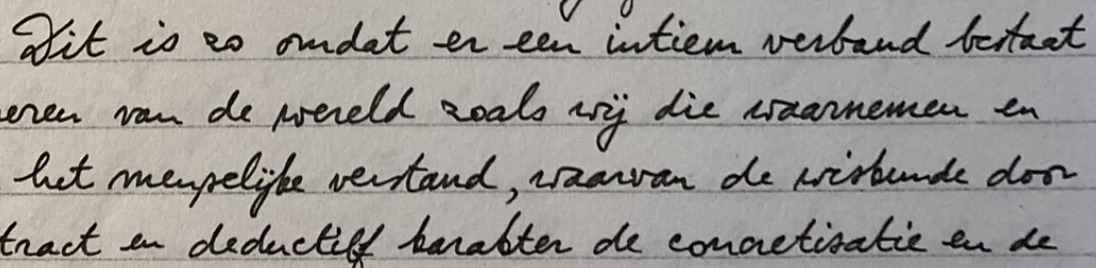 Dit is zo omdat er een intiem verband bestaat
eren van de wereld zoals wij die waarnemen en
het menselijke verstand, waarvan de wiskunde door
tract en deductief karakter de concretisatie en de